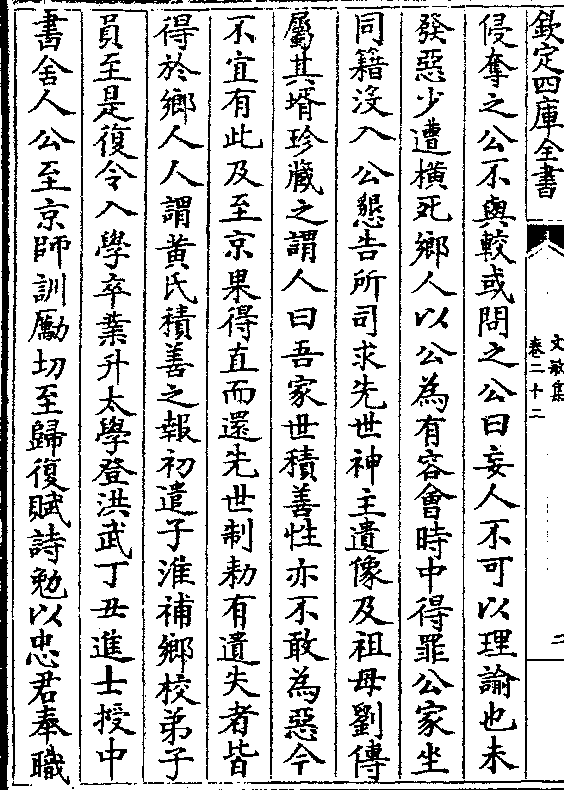 欽定四庫全書
文敏集
卷二十二
二
侵奪之公不與較或問之公曰妄人不可以理諭也未
發惡少遭橫死鄉人以公為有容會時中得罪公家坐
同籍沒入公懇告所司求先世神主遺像及祖母劉傳
屬其壻珍藏之謂人曰吾家世積善性亦不敢為惡今
不宜有此及至京果得直而還先世制勅有遺失者皆
得於鄉人人謂黃氏積善之報初遣子淮補鄉校弟子
員至是復令入學卒業升太學登洪武丁丑進士授中
書舍人公至京師訓勵切至歸復賦詩勉以忠君奉職